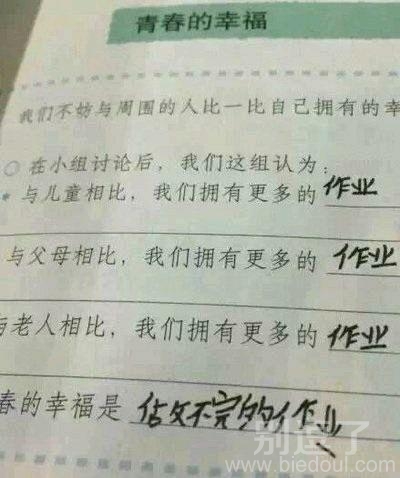 青春的幸福
我们不妨与周围的人比一比自己拥有的幸
○ 在小组讨论后，我们这组认为：
与儿童相比，我们拥有更多的 作业
与父母相比，我们拥有更多的 作业
与老人相比，我们拥有更多的 作业
春的幸福是 估文不完的作业
别逗了
www.biedoul.com